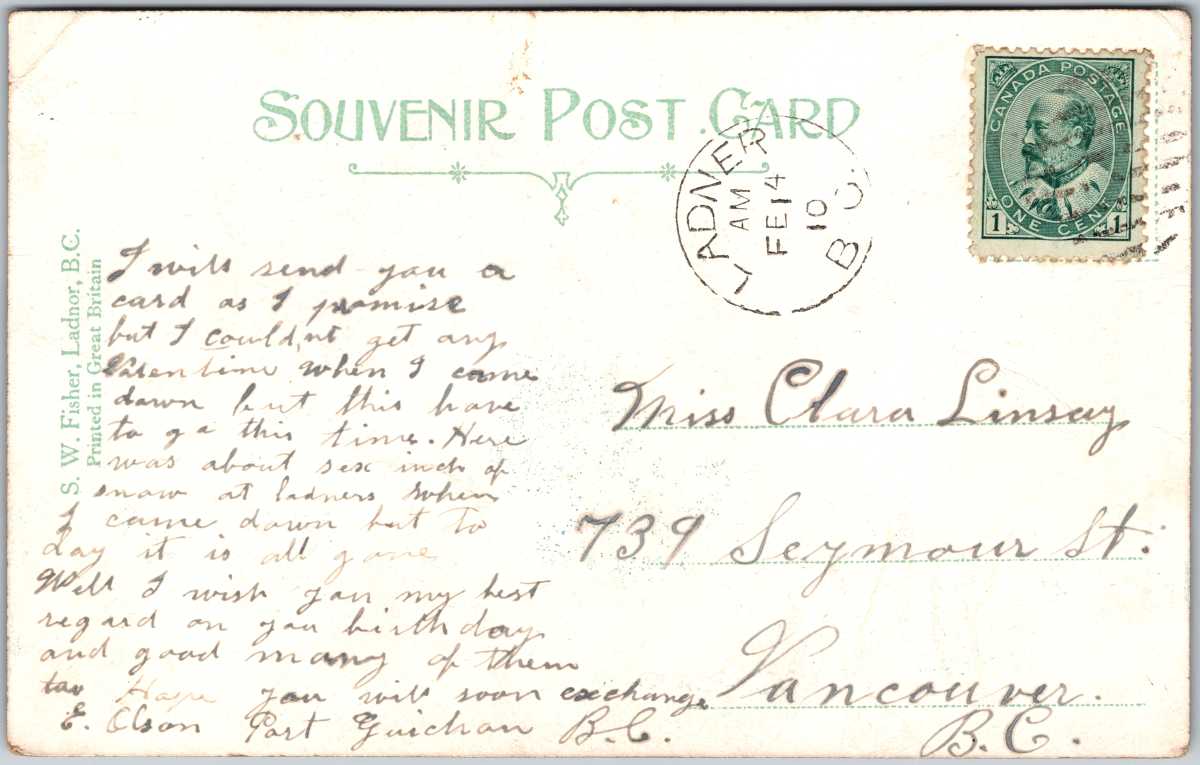 SOUVENIR POST CARD
CANADA POSTAGE
1 ONE CENT 1
LADNER B.C.
AM
FE 14
10
S. W. Fisher, Ladnor, B.C.
Printed in Great Britain
I will send you a
card as I promise
but I couldnt get any
Valentine when I came
down but this have
to go this time. Here
was about sex inch of
snow at ladners when
I came down but to
day it is all gone
Well I wish you my best
regard on you birthday
and good many of them
Hope you will soon exchange
E. Olson Port Guichon B.C.
Miss Clara Linsay
739 Seymour St.
Vancouver.
B.C.